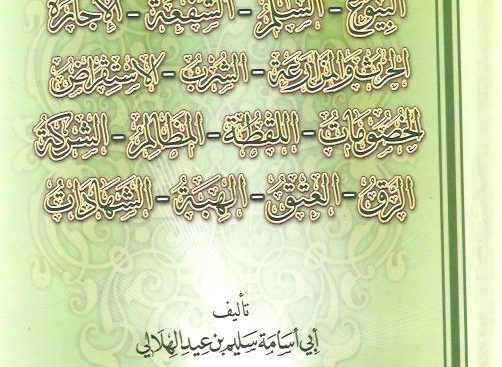 البيوع - السلم - الشفعة - الإجارة
الحرث والمزارعة - الشرب - الاستقراض
الخصومات - اللقطة - المظالم - الشركة
الرق - العتق - الهبة - الشهادات
تأليف
أبي أسامة سليم بن عيد الهلالي